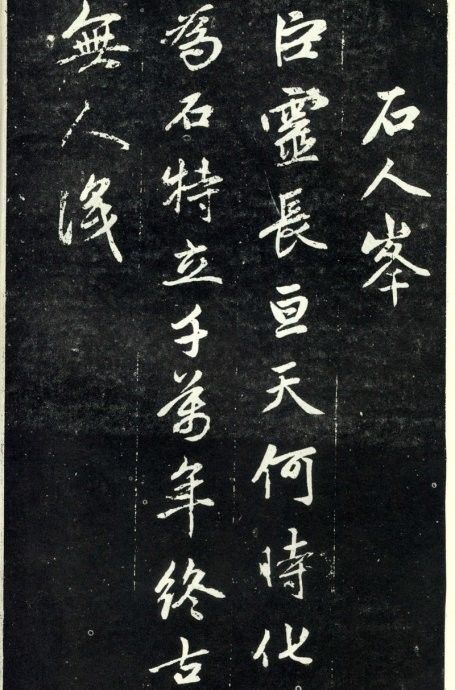 石人峯
巨靈長亘天何時化
為石特立千萬年終古
無人識